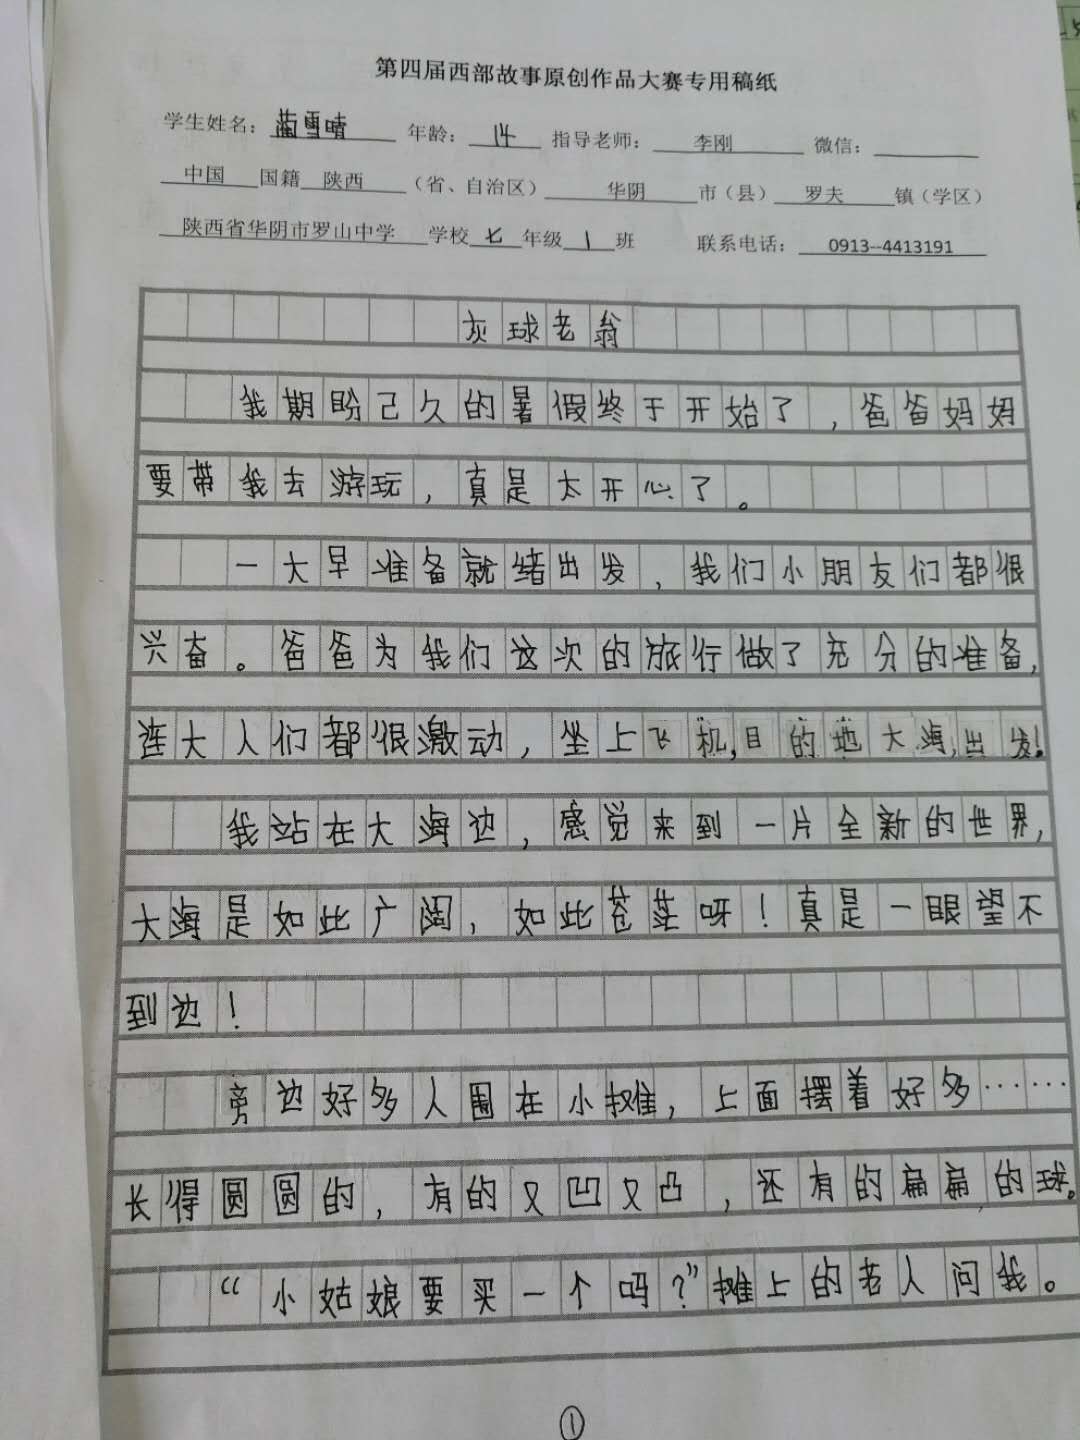 第四届西部故事原创作品大赛专用稿纸
学生姓名：蔺雪晴 年龄：14 指导老师：李刚 微信：
中国 国籍 陕西 （省、自治区） 华阴 市（县） 罗夫 镇（学区）
陕西省华阴市罗山中学 学校 七 年级 1 班 联系电话：0913--4413191
灰球老翁
我期盼己久的暑假终于开始了，爸爸妈妈
要带我去游玩，真是太开心了。
一大早准备就绪出发，我们小朋友们都很
兴奋。爸爸为我们这次的旅行做了充分的准备，
连大人们都很激动，坐上飞机，目的地大海，出发！
我站在大海边，感觉来到一片全新的世界，
大海是如此广阔，如此苍茫呀！真是一眼望不
到边！
旁边好多人围在小摊，上面摆着好多……
长得圆圆的，有的又凹又凸，还有的扁扁的球。
“小姑娘要买一个吗？”摊上的老人问我。
1